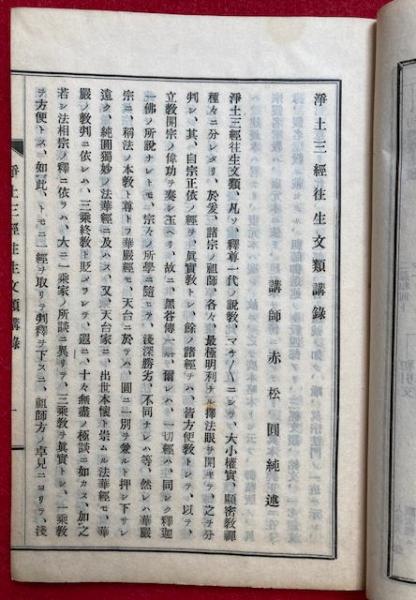 淨土三經往生文類講錄
講師 赤松圓純述
淨土三經往生文類、凡ソ釋尊一代ノ說教、マチ〳〵ニシテ、大小權實、顯密教禪
種々ニ分レタリ、於爰、諸宗ノ祖師、各々、最極明利ナル擇法眼ヲ開キテ、之ヲ分
判シ、其、自宗正依ノ經ヲ、眞實教トシ、餘ノ諸經ヲハ、皆方便教トシテ、以テ、
立教開宗ノ偉功ヲ奏シ玉ヘリ、故ニ、黑谷傳ニ、爾レハ、一切經ハ、同シク釋迦
一佛ノ所說ナレトモ、宗々ノ所學ニ隨テ、淺深勝劣、不同ナレハ等、然レハ華嚴
宗ニ、稱法ノ本教ト尊トフ華嚴經モ、天台ニ於テハ、圓ニ一別ヲ兼ルト押シ下サレ
遠ク、純圓獨妙ノ法華經ニ及ハス、又天台家ニ、出世本懷ト崇ムル法華經モ、華
嚴ノ教判ニ依レハ、三乘終教ト貶シラレテ、遐ニ、十々無盡ノ極談ニ如カス、加之
若シ法相宗ノ釋ニ依ラハ、大ニ一乘家ノ所談ニ異リテ、三乘教ヲ眞實トシ、一乘教
ヲ方便トス、如此、トモニ一經ヲ取リテ判釋ヲ下スニ、祖師方ノ卓見ニヨリテ、淺
淨土三經往生文類講錄
一